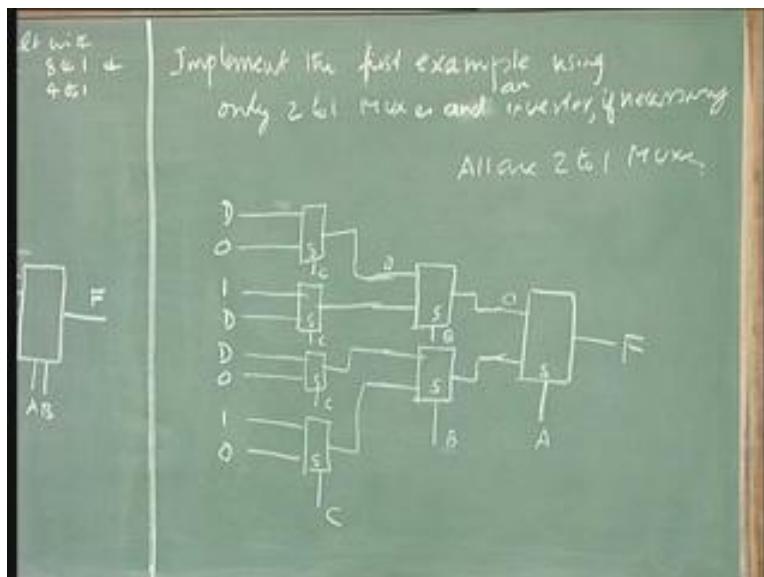 8 to 1
4 to 1
F
AB
Implement the first example using
an
only 2 to 1 Muxes and inverter, if necessary
All are 2 to 1 Muxes
D
0
S
C
1
D
S
C
D
0
S
C
1
0
S
C
0
S
B
S
B
0
S
A
F